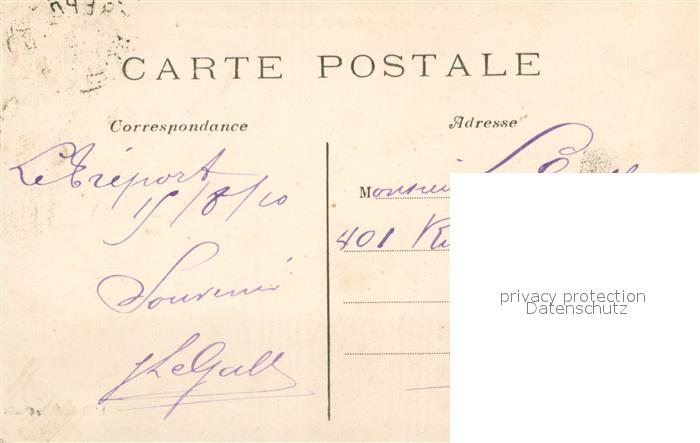 CARTE POSTALE
Correspondance
Adresse
Le Tréport
15/8/10
Souvenir
JLeGall
Monsieur
401
privacy protection
Datenschutz